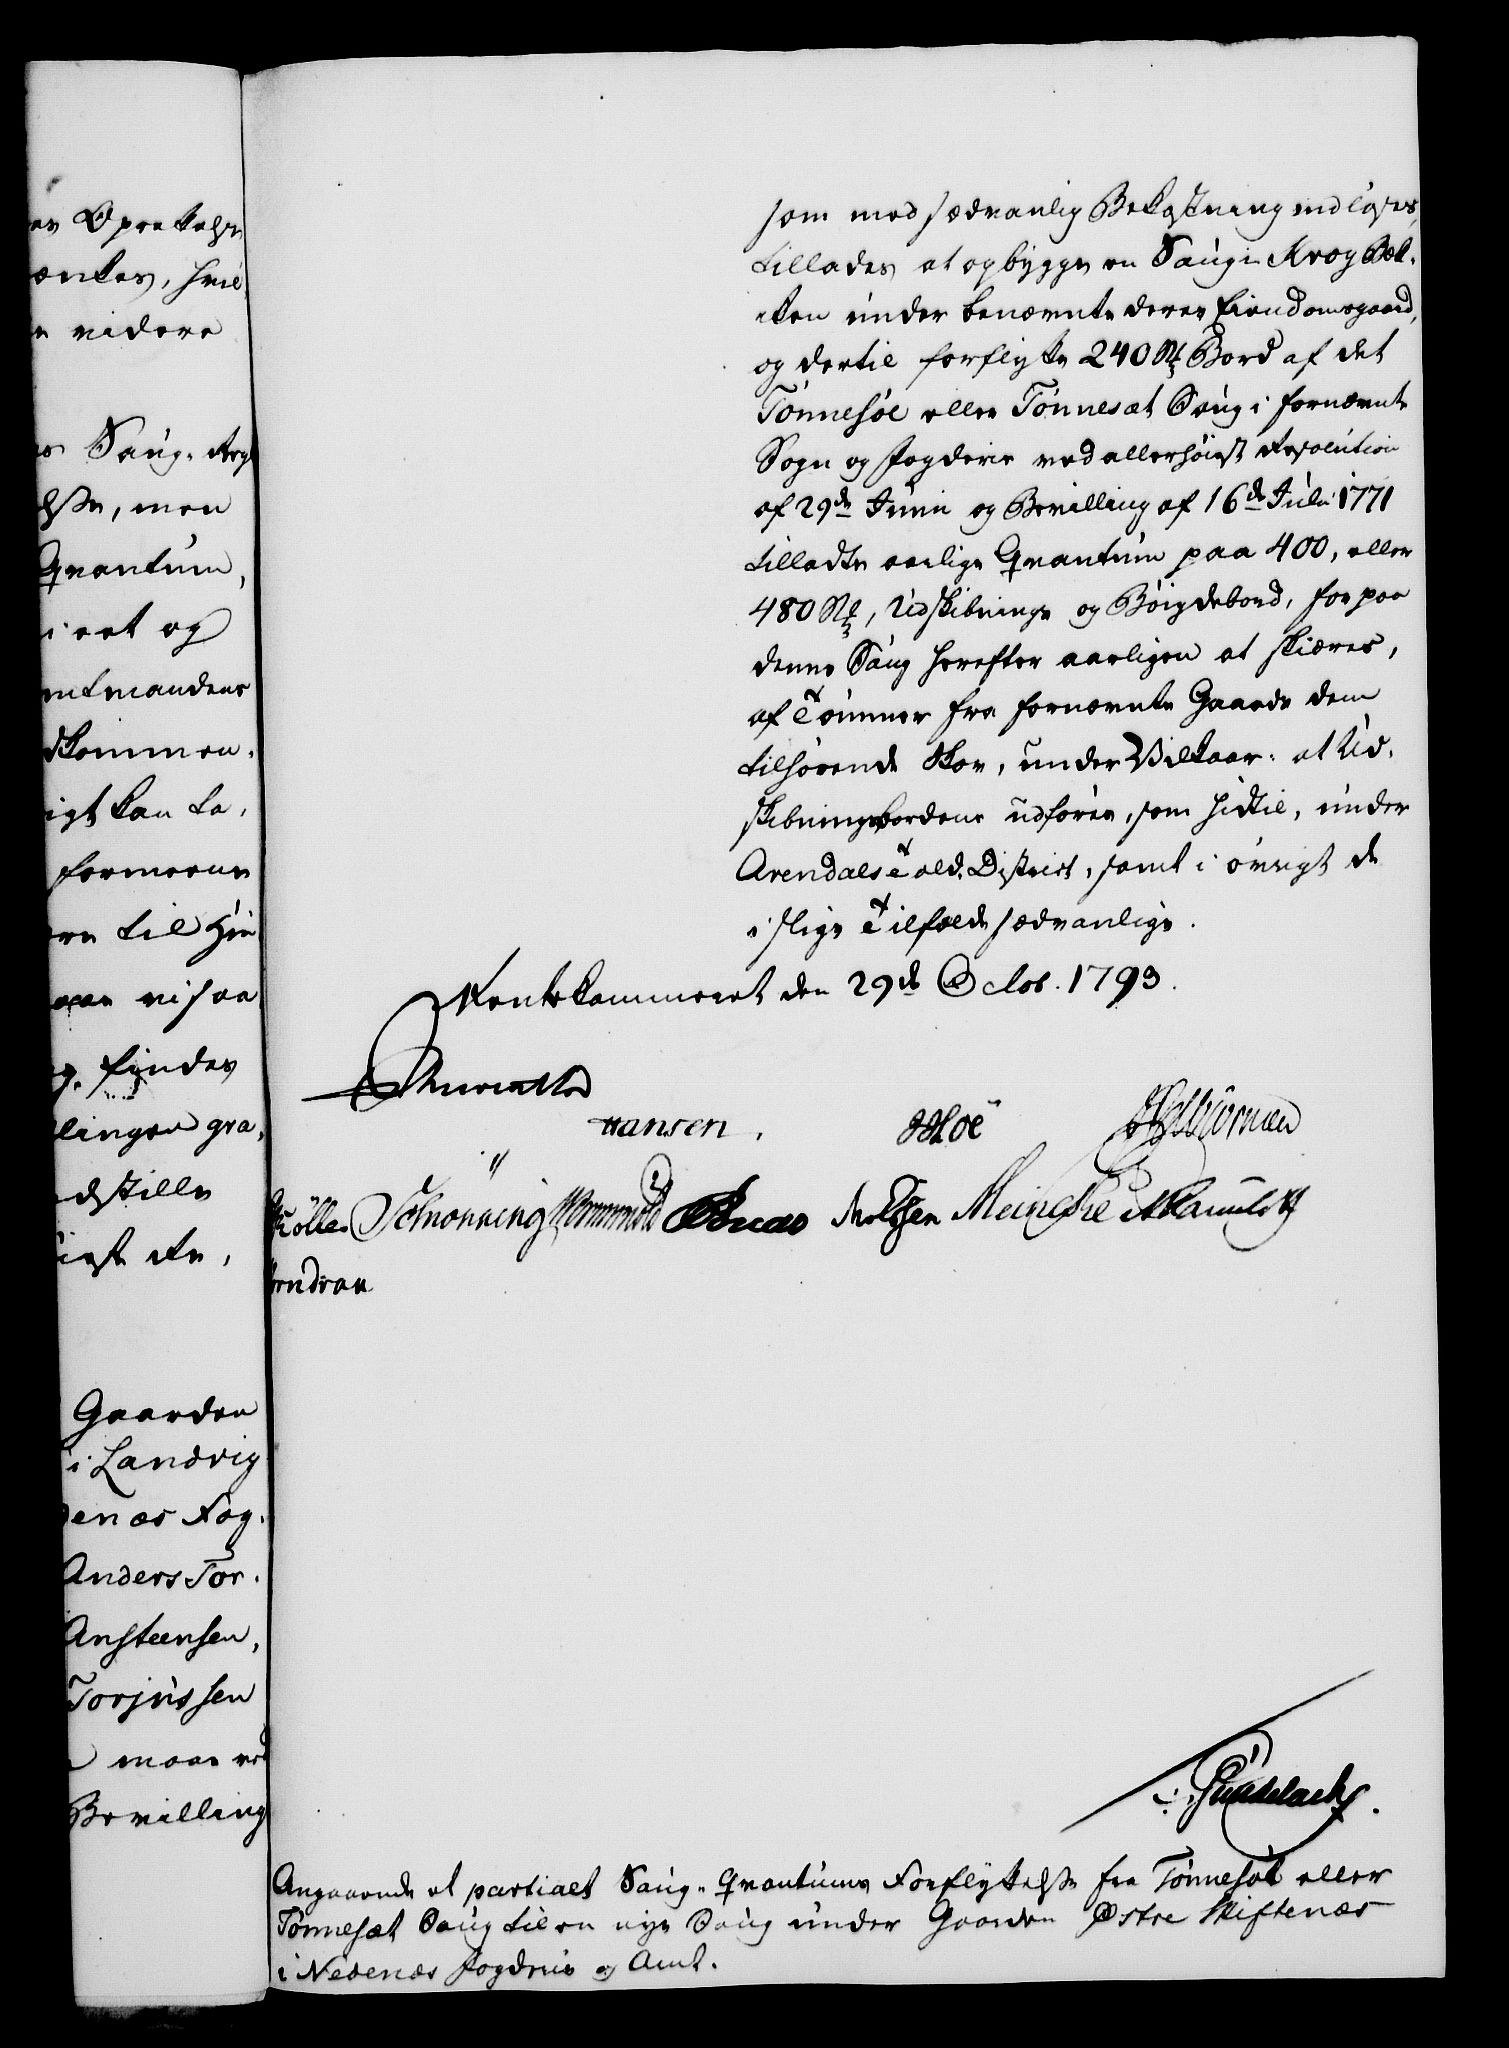 er Oprettelse
ænkes, hvil
videre
Saug-Regl
else, men
Qvantum,
i eet og
mtmandens
dkommen-
igt kan ta-
formeene
til Hin
vi saa
findes
lingen gra-
dstille
Gaarden
i Landvig
denæs Fog-
Anders Tor-
Ansteensen,
Torjussen
maae ved
Bevilling
som med sædvanlig Bekostning indløses,
tillades at opbygge en Saug i Krog Bæk-
ken under benævnte deres Eiendomsgaard,
og dertil forflytte 240 Bord af det
Tönnesöe eller Tönnesæt Saug i fornævnte
Sogn og Fogderie ved allerhöiest Resolution
af 29de Junii og Bevilling af 16de Julii 1771
tilladte aarlige Qvantum paa 400, eller
480, Udskibnings og Böigdebord, for paa
denne Saug herefter aarligen at skiæres,
af Tömmer fra fornævnte Gaards dem
tilhörende Skov, under Vilkaar: at Ud-
skibningsbordene udföres, som hidtil, under
Arendals Told-District, samt i övrigt de
i slige Tilfælde sædvanlige.
Rentekammeret den 29de Octob. 1793.
Hansen.
Schönning Wormskiold Meincke
Angaaende et partialt Saug-Qvantums Forflyttelse fra Tönnesöe eller
Tönnesæt Saug til en nye Saug under Gaarden Østre Skiftenæs
i Nedenæs Fogderie og Amt.